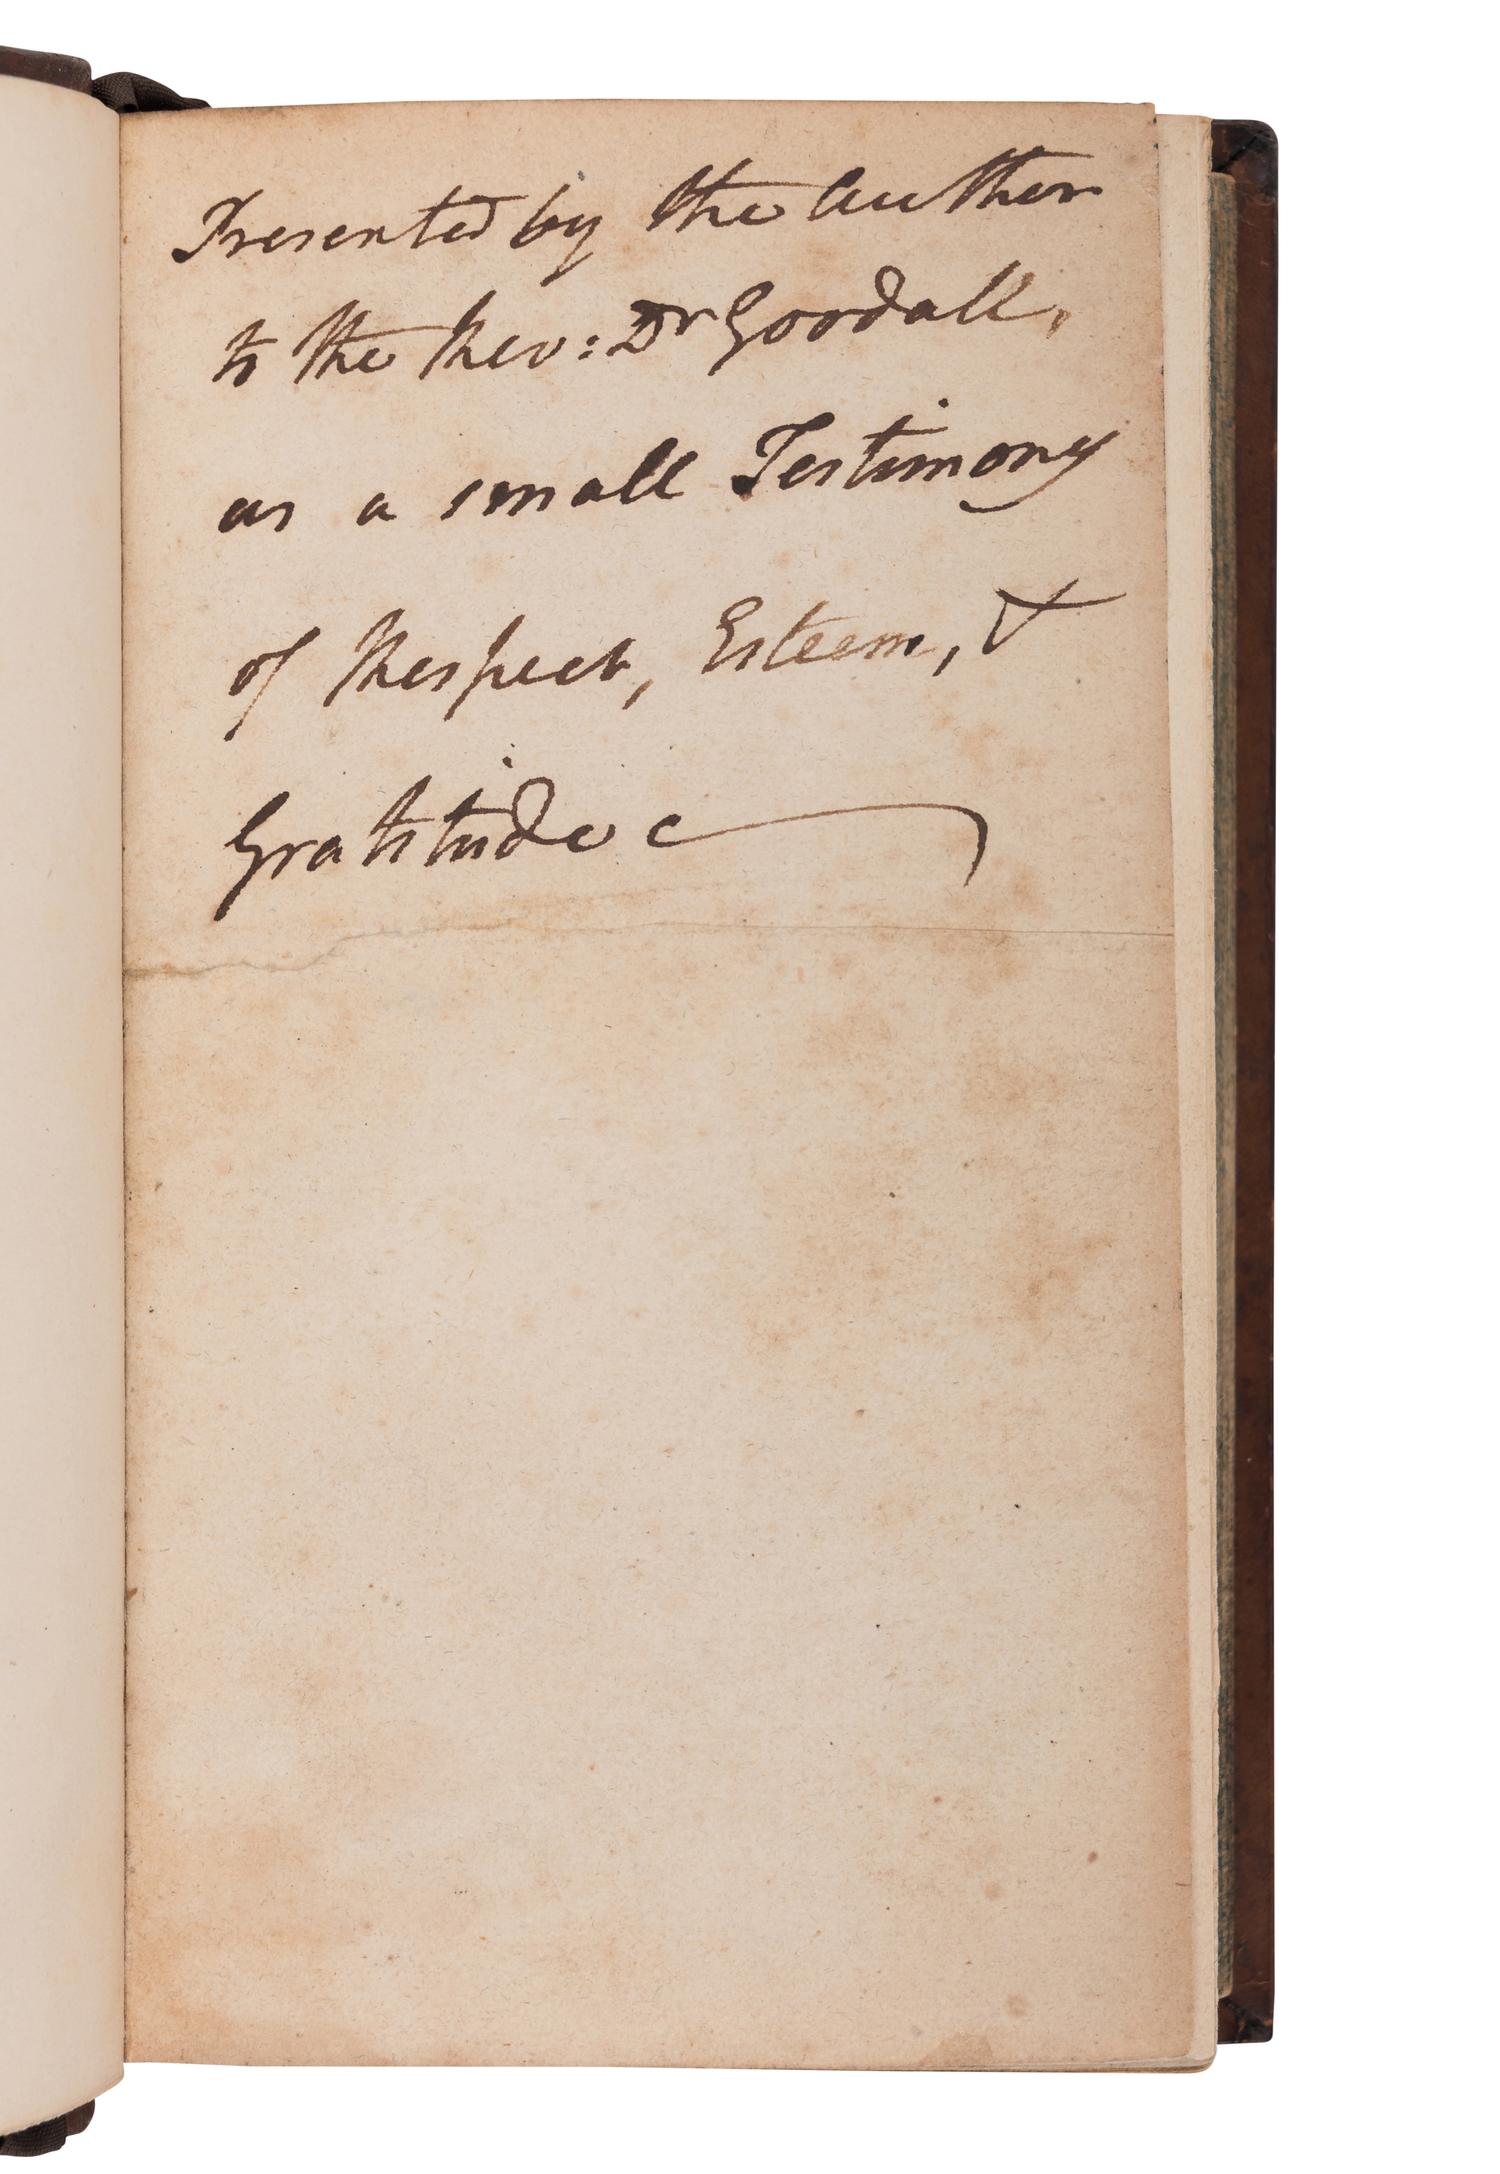 Presented by the Author
to the Rev: Dr Goodall,
as a small Testimony
of Respect, Esteem, &
Gratitude